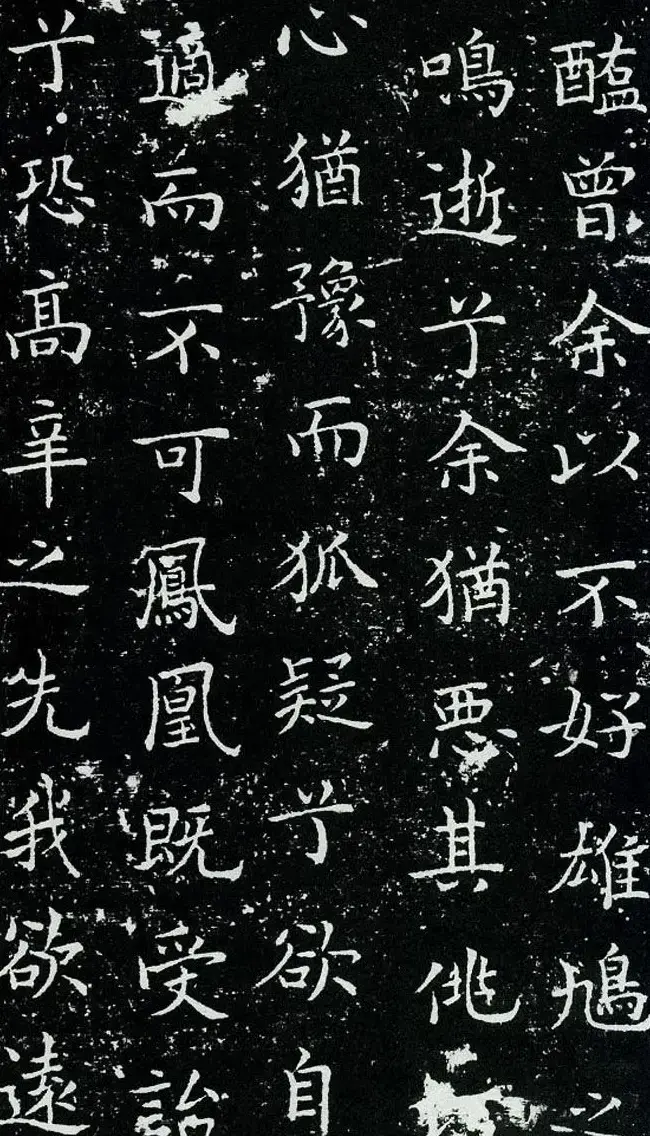 醢曾余以不好雄鳩之
鳴逝兮余猶悪其佻
心猶豫而狐疑兮欲自
適而不可鳳凰既受詒
兮恐高辛之先我欲遠